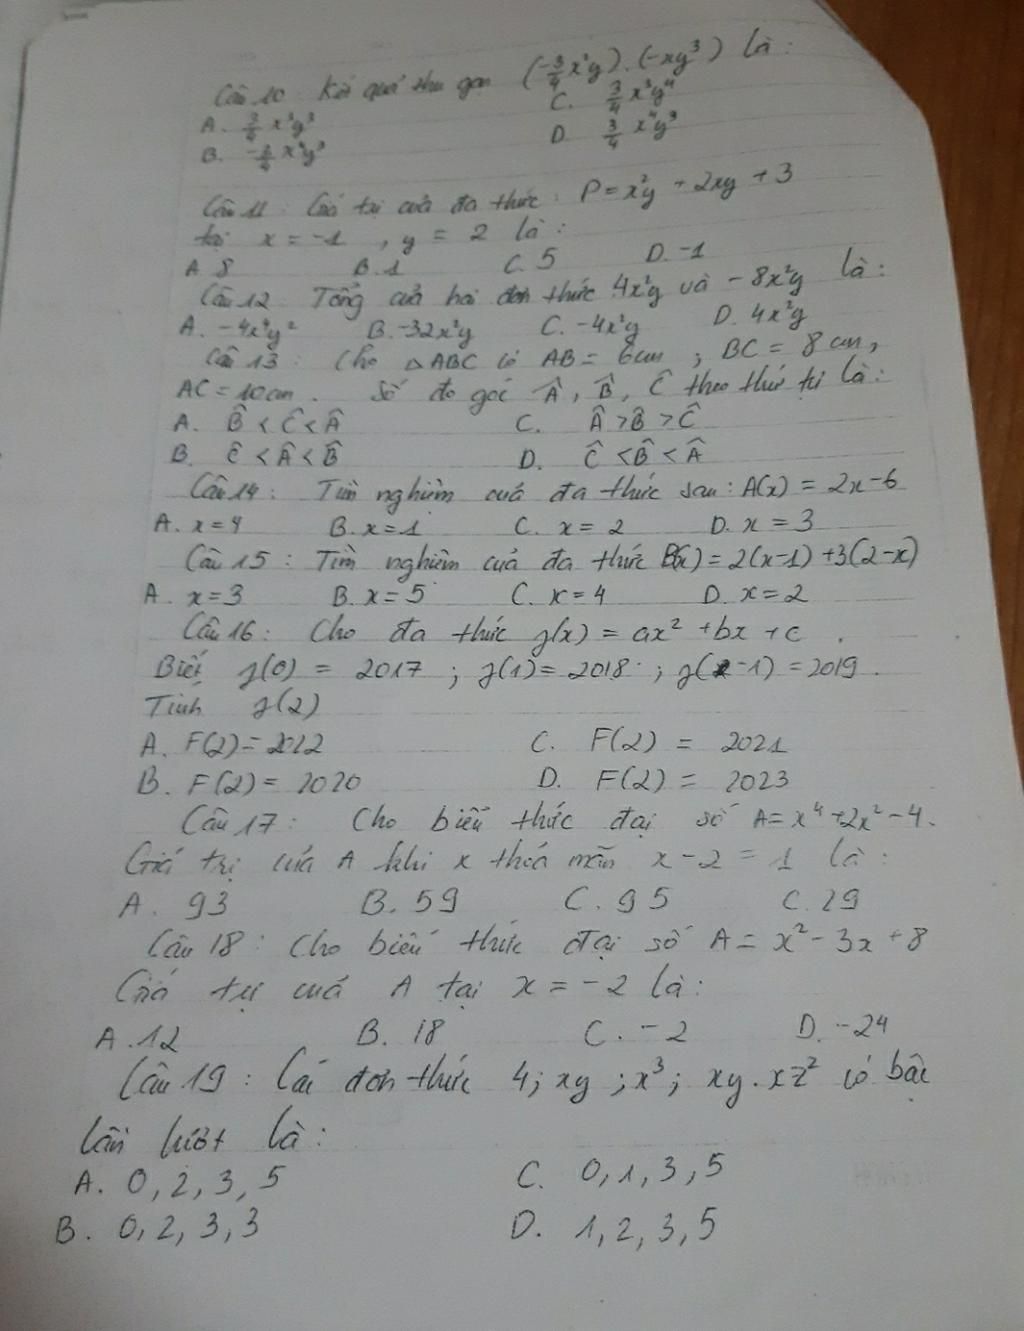 Câu 10 Kết quả thu gọn (-3/4 x²y).(-xy³) là:
A. 3/4 x³y³ C. 3/4 x³y⁴
B. -3/4 x³y³ D. 3/4 x⁴y³
Câu 11: Giá trị của đa thức: P = x²y + 2xy + 3
tại x = -1 , y = 2 là:
A. 8 B. 1 C. 5 D. -1
Câu 12: Tổng của hai đơn thức 4x²y và -8x²y là:
A. -4x⁴y² B. -32x²y C. -4x²y D. 4x²y
Câu 13: Cho △ABC có AB = 6cm ; BC = 8cm,
AC = 10cm. Số đo góc Â, B̂, Ĉ theo thứ tự là:
A. B̂ < Ĉ < Â C. Â > B̂ > Ĉ
B. Ĉ < Â < B̂ D. Ĉ < B̂ < Â
Câu 14: Tìm nghiệm của đa thức sau: A(x) = 2x-6
A. x=4 B. x=1 C. x=2 D. x=3
Câu 15: Tìm nghiệm của đa thức B(x) = 2(x-1)+3(2-x)
A. x=3 B. x=5 C. x=4 D. x=2
Câu 16: Cho đa thức f(x) = ax² + bx + c .
Biết f(0) = 2017 ; f(1) = 2018 ; f(-1) = 2019.
Tính f(2)
A. F(2) = 2012 C. F(2) = 2021
B. F(2) = 2020 D. F(2) = 2023
Câu 17: Cho biểu thức đại số A = x⁴+2x²-4.
Giá trị của A khi x thoả mãn x-2 = 1 là:
A. 93 B. 59 C. 95 C. 29
Câu 18: Cho biểu thức đại số A = x²-3x+8
Giá trị của A tại x = -2 là:
A. 12 B. 18 C. -2 D. -24
Câu 19: Các đơn thức 4; xy ; x³; xy.xz² có bậc
lần lượt là:
A. 0, 2, 3, 5 C. 0, 1, 3, 5
B. 0, 2, 3, 3 D. 1, 2, 3, 5